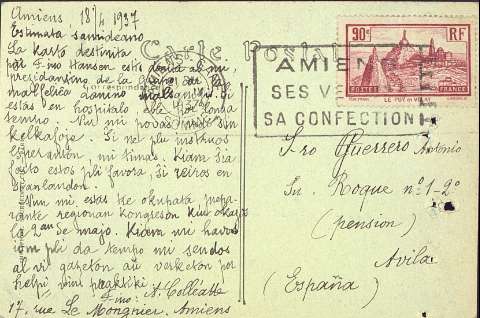 Amiens 18/4 1937
Estimata samideano
La karto destinita
por F-ino Hansen estis donita al mi,
prezidantino de la grupo ĉar la
malfeliĉa damino malsaniĝis. Ŝi
estas en hospitalo
tempo. Nur mi povas
kelkafoje. Ŝi ne plu instruos
Esperanton, mi timas. Kiam ŝia
farto estos pli favora, ŝi reiros en
Skanlandon.
Nun mi estas tre okupata prepa-
rante regionan kongreson kiu okazos
la 2an de majo. Kiam mi havos
iom pli da tempo mi sendos
al vi gazeton aŭ verketon por
helpi vin praktiki
F-ino A. Colléatte
17, rue Le Mongnier. Amiens
Carte Postale
Correspondance
AMIENS
SES V
SA CONFECTION
90c RF
POSTES FRANCE
LE PUY-EN-VELAY
Sro Guerrero Antonio
Sn. Roque nº 1-2º
(pension)
Avila
(España)